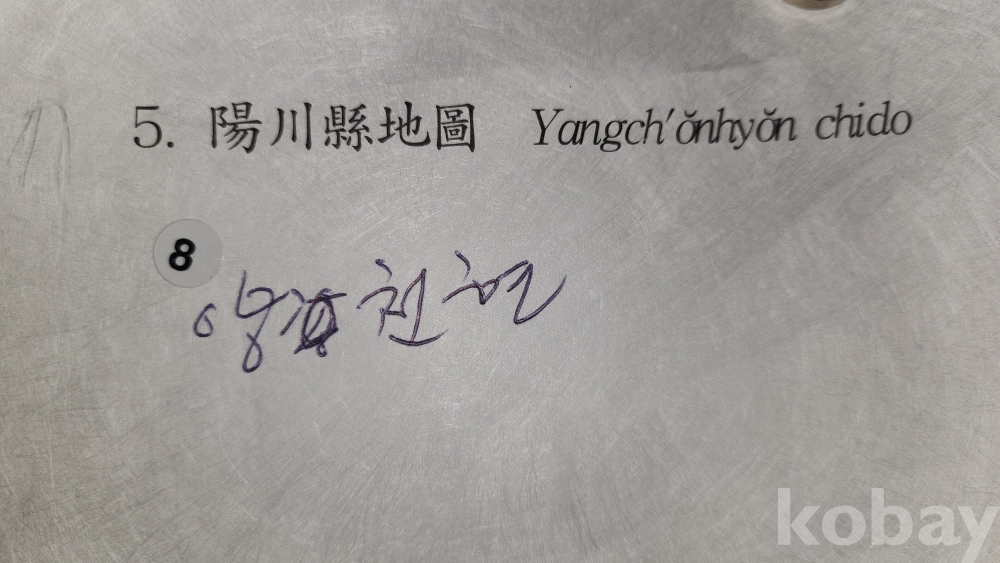 5. 陽川縣地圖 Yangch'ŏnhyŏn chido
8
양천현
kobay